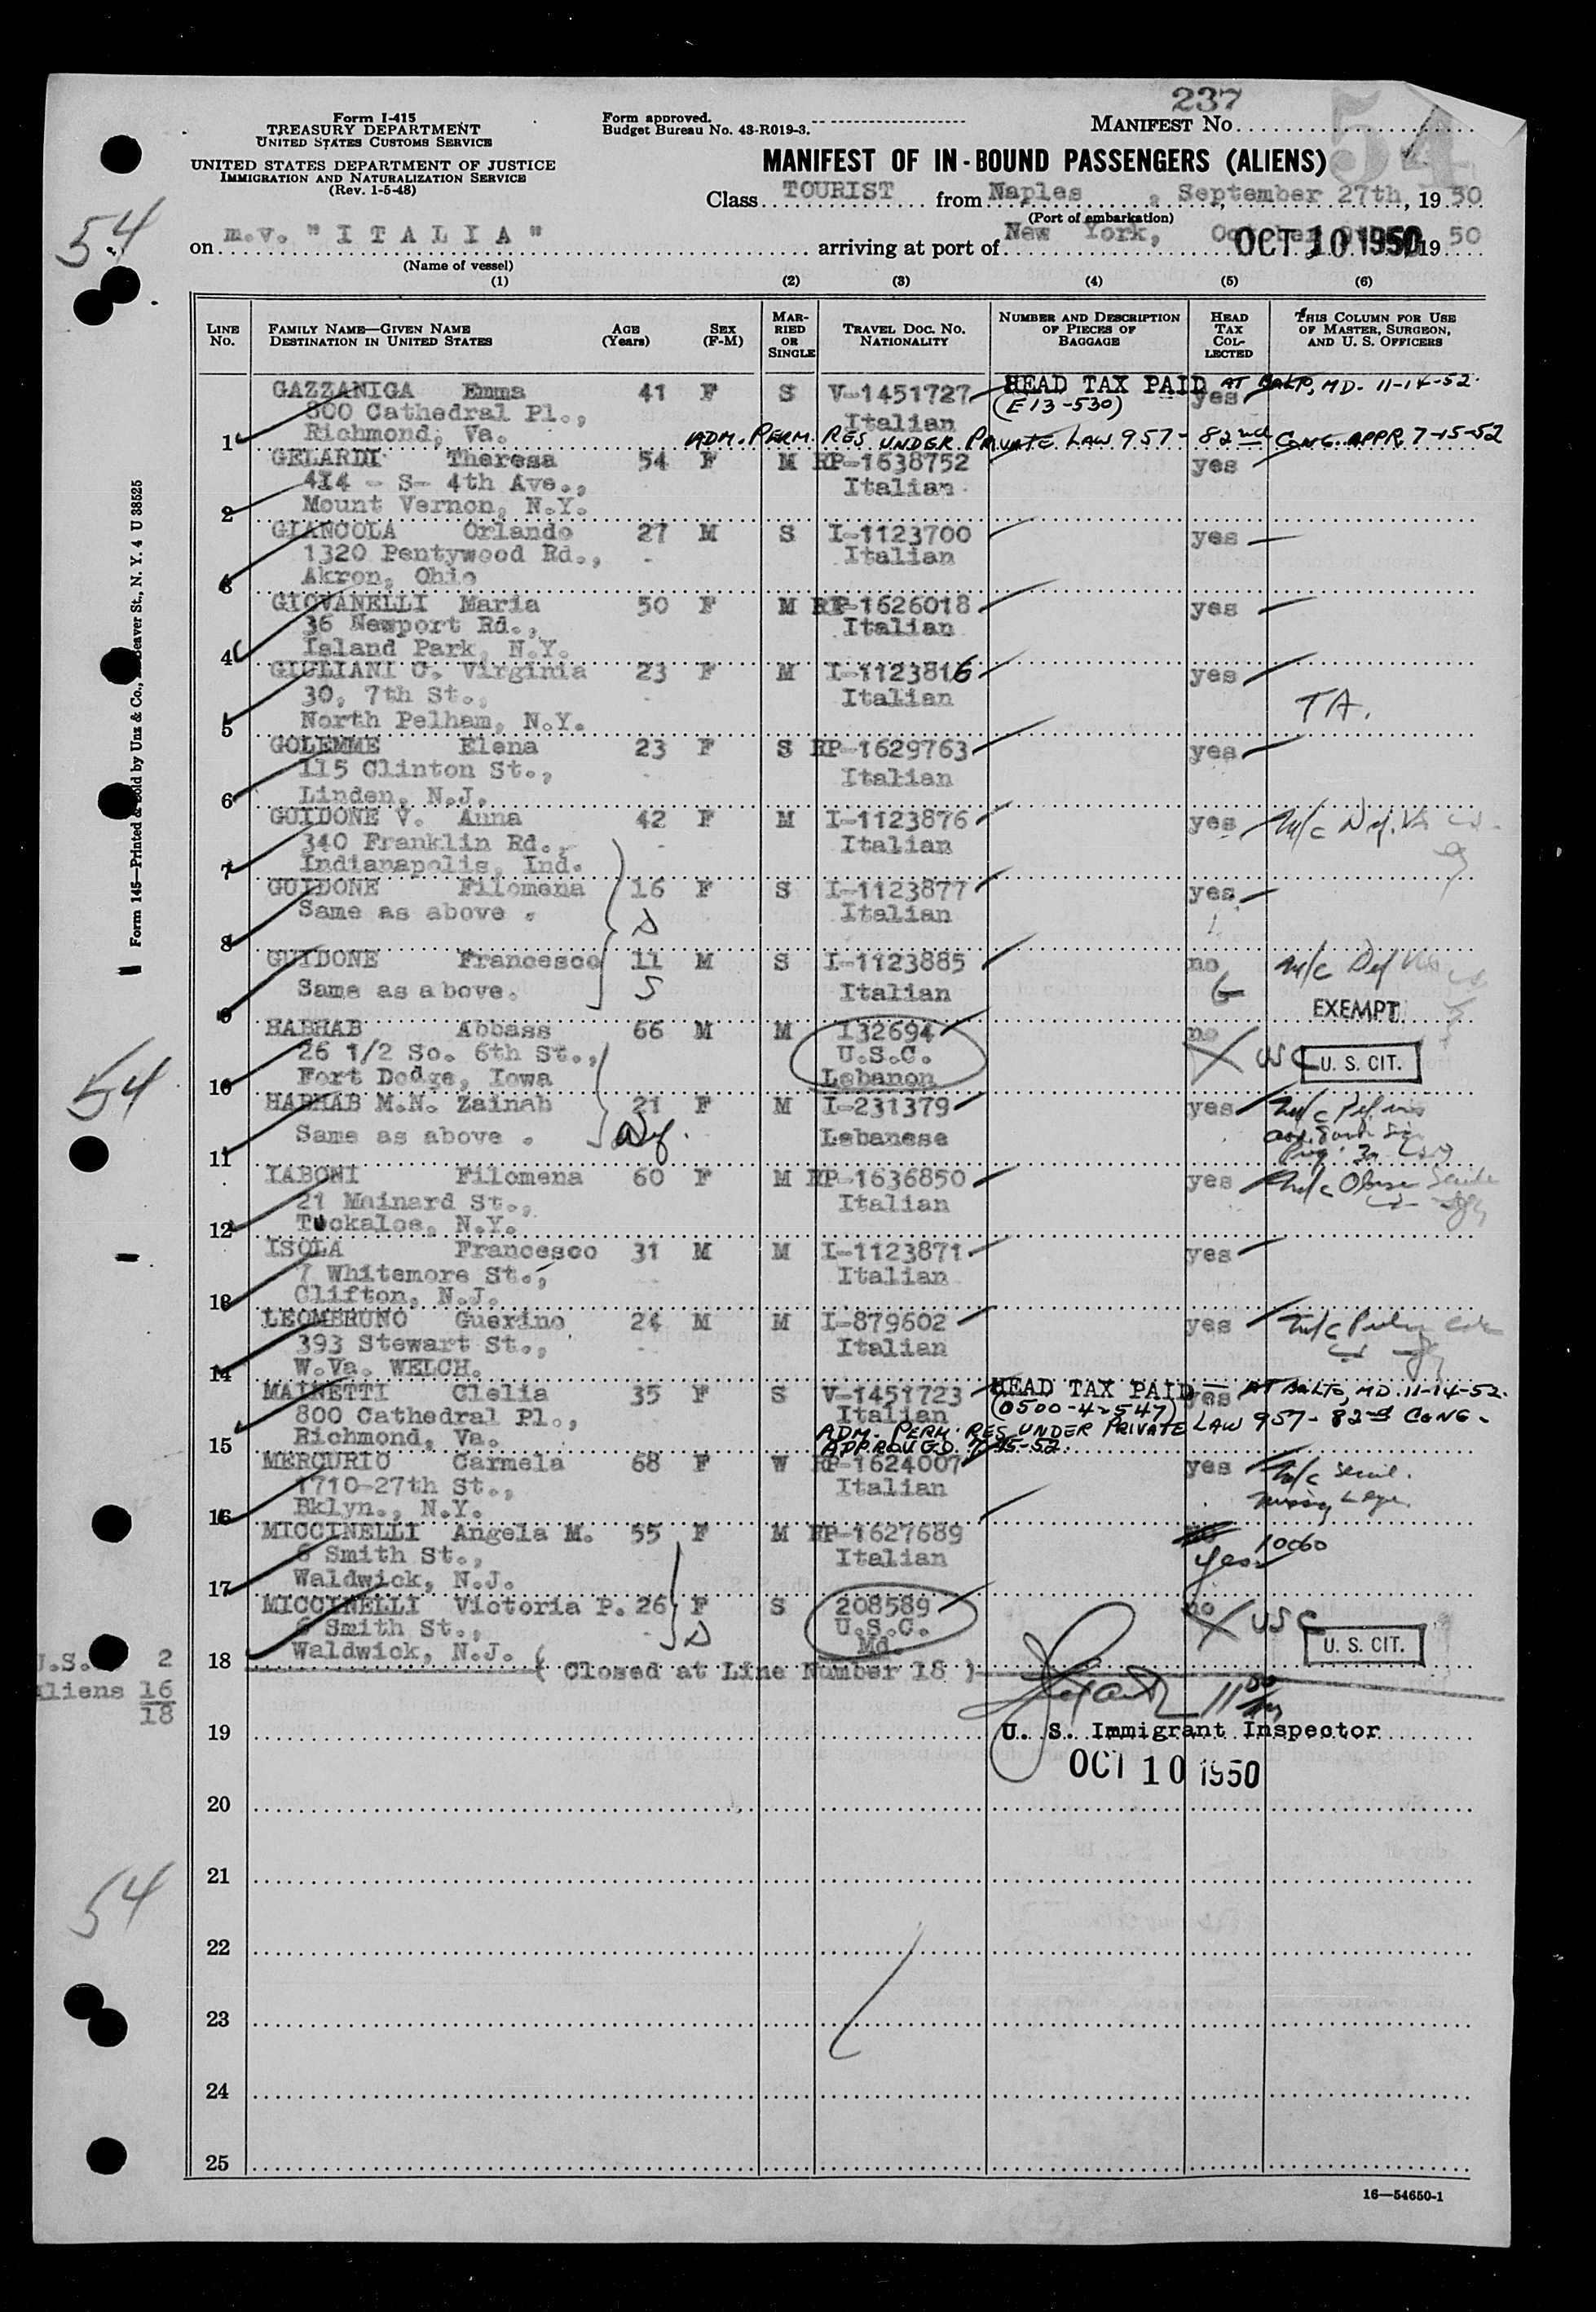 237
Form I-415
TREASURY DEPARTMENT
UNITED STATES CUSTOMS SERVICE
UNITED STATES DEPARTMENT OF JUSTICE
IMMIGRATION AND NATURALIZATION SERVICE
(Rev. 1-5-48)
Form approved.
Budget Bureau No. 43-R019-3.
MANIFEST No.
54
MANIFEST OF IN-BOUND PASSENGERS (ALIENS)
Class TOURIST from Naples, September 27th, 1950
(Port of embarkation)
54
on m.v. "ITALIA" arriving at port of New York, OCT 10 1950 1950
(Name of vessel)
(1) (2) (3) (4) (5) (6)
LINE No. FAMILY NAME—GIVEN NAME DESTINATION IN UNITED STATES AGE (Years) SEX (F-M) MARRIED OR SINGLE TRAVEL DOC. NO. NATIONALITY NUMBER AND DESCRIPTION OF PIECES OF BAGGAGE HEAD TAX COLLECTED THIS COLUMN FOR USE OF MASTER, SURGEON, AND U. S. OFFICERS
GAZZANIGA Emma 41 F S V-1451727 HEAD TAX PAID yes AT BALTO, MD. 11-14-52.
800 Cathedral Pl., Italian (E13-530)
1 Richmond, Va. ADM. PERM. RES. UNDER PRIVATE LAW 957- 82nd CONG. APPR. 7-15-52
GELARDI Theresa 54 F M RP-1638752 yes
414 - S- 4th Ave., Italian
2 Mount Vernon, N.Y.
GIANCOLA Orlando 27 M S I-1123700 yes
1320 Pentywood Rd., Italian
3 Akron, Ohio
GIOVANELLI Maria 50 F M RP-1626018 yes
36 Newport Rd., Italian
4 Island Park, N.Y.
GIULIANI C. Virginia 23 F M I-1123816 yes
30, 7th St., Italian TA.
5 North Pelham, N.Y.
GOLEMME Elena 23 F S RP-1629763 yes
115 Clinton St., Italian
6 Linden, N.J.
GUIDONE V. Anna 42 F M I-1123876 yes m/c Def. Vis
340 Franklin Rd., Italian
7 Indianapolis, Ind.
GUIDONE Filomena 16 F S I-1123877 yes
Same as above . D Italian
8
GUIDONE Francesco 11 M S I-1123885 no m/c Def Vis
Same as above. S Italian G
9 EXEMPT
HABHAB Abbass 66 M M 132694 no
26 1/2 So. 6th St., U.S.C. USC U. S. CIT.
10 Fort Dodge, Iowa Lebanon
54
HABHAB M.N. Zainab 21 F M I-231379 yes m/c Def vis
Same as above . Wf. Lebanese
11
IABONI Filomena 60 F M RP-1636850 yes m/c Obese Senile
21 Mainard St., Italian
12 Tuckaloe, N.Y.
ISOLA Francesco 31 M M I-1123871 yes
7 Whitemore St., Italian
13 Clifton, N.J.
LEOMBRUNO Guerino 24 M M I-879602 yes m/c
393 Stewart St., Italian
14 W.Va. WELCH.
MAINETTI Clelia 35 F S V-1451723 HEAD TAX PAID yes AT BALTO, MD. 11-14-52.
800 Cathedral Pl., Italian (0500-42547)
15 Richmond, Va. ADM. PERM. RES UNDER PRIVATE LAW 957- 82nd CONG-
APPROVED 7-15-52.
MERCURIO Carmela 68 F W RP-1624007 yes m/c Senil.
1710-27th St., Italian missing
16 Bklyn., N.Y.
MICCINELLI Angela M. 55 F M RP-1627689 no 10060
6 Smith St., Italian yes
17 Waldwick, N.J.
MICCINELLI Victoria P. 26 F S 208589 no USC
6 Smith St., D U.S.C. U. S. CIT.
18 Waldwick, N.J. Md.
( Closed at Line Number 18 )
U.S. 2
Aliens 16
18
11 00
19 U. S. Immigrant Inspector
OCT 10 1950
20
21
54
22
23
24
25
16—54650-1
Form 145—Printed & Sold by Unz & Co., Beaver St., N. Y. 4 U 38525